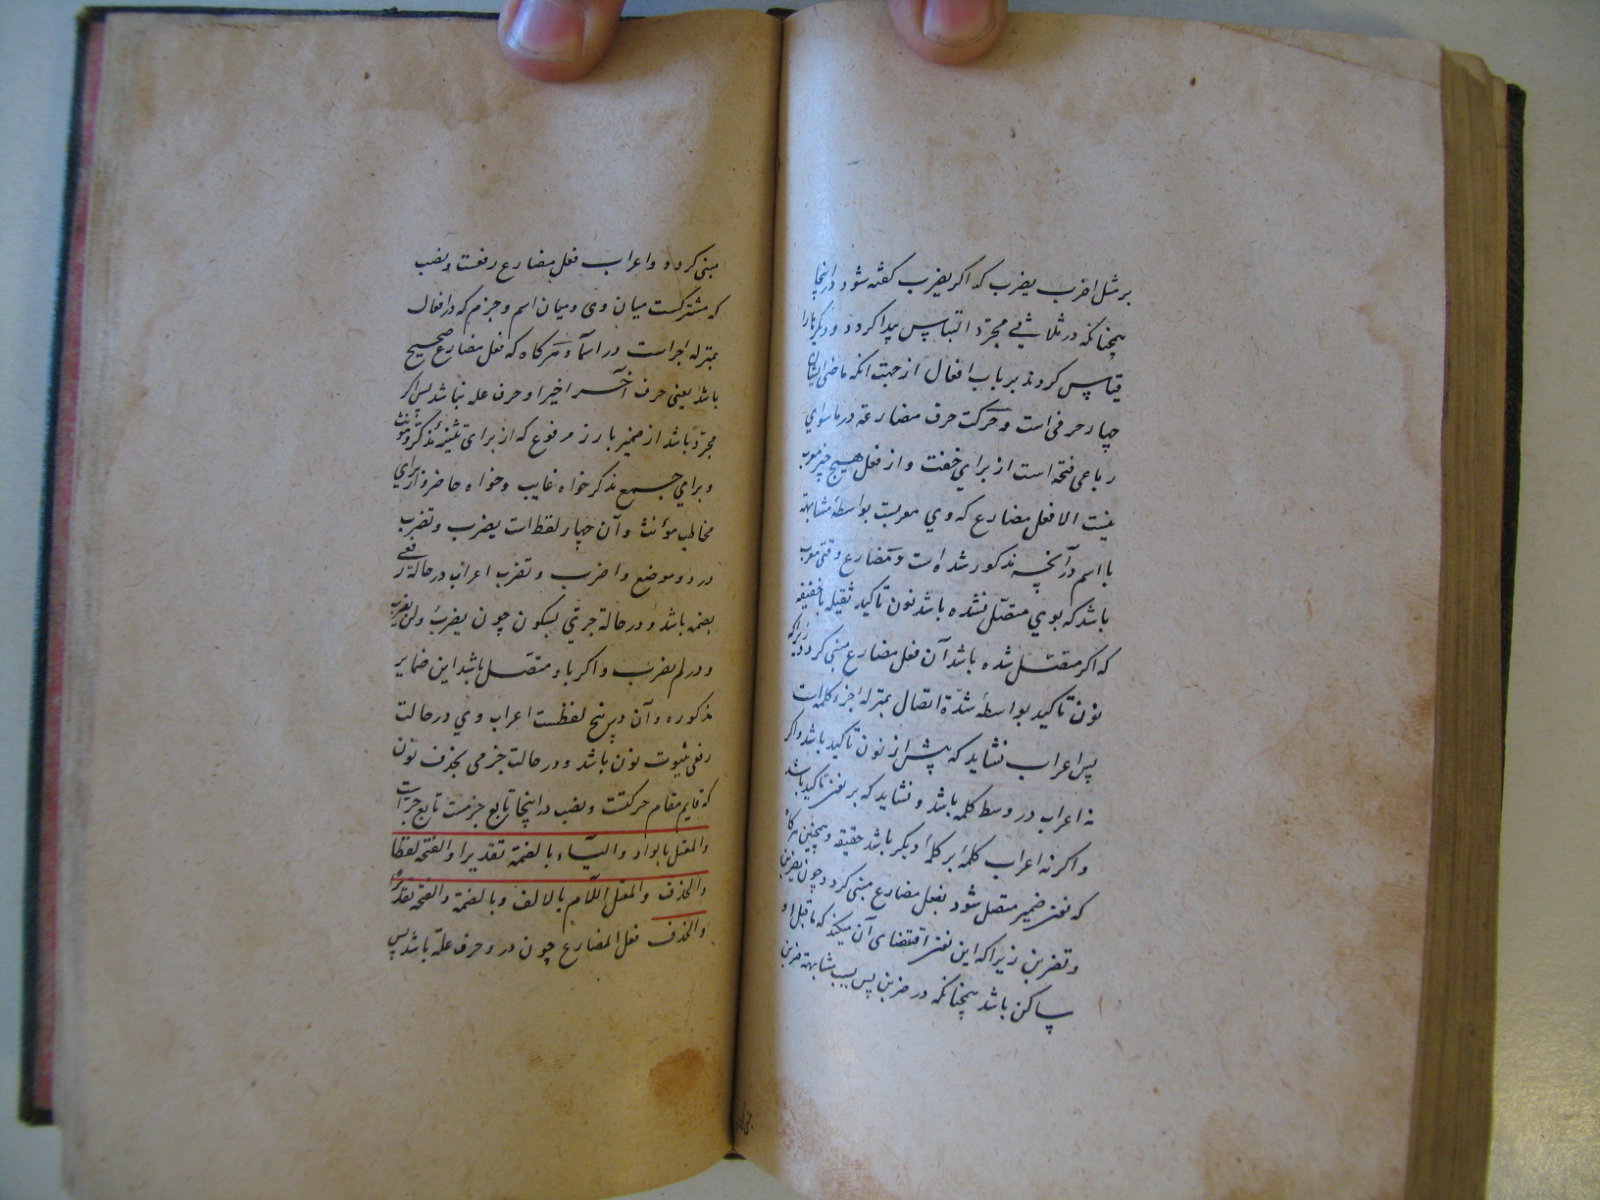 بر مثل اضرب یضرب که اکر یضرب کفته شود در اینجا
همچنانکه در ثلاثی مجرد التباس پیدا کردد و دیکر بارا
قیاس کردند بر باب افعال از جهت انکه ماضی ایشان
چهار حرفی است و حرکت حرف مضارعه در ماسوای
رباعی فتحه است از برای خفت و از فعل هیچ چیز معرب
نیست الا فعل مضارع که وی معربست بواسطهٔ مشابهة
با اسم در آنچه مذکور شده است و مضارع وقتی معرب
باشد که بوی متصل نشده باشد نون تاکید ثقیله یا خفیفه
که اکر متصل شده باشد آن فعل مضارع مبنی کردد زیرا که
نون تاکید بواسطه شدّة اتصال بمنزله جزء کلمه است
پس اعراب نشاید که پیش از نون تاکید باشد و اکر
نه اعراب در وسط کلمه باشد و نشاید که بر نفس تاکید باشد
و اکر نه اعراب کلمهٔ بر کلمهٔ دیکر باشد حقیقة و همچنین هرکاه
که نون ضمیر متصل شود بفعل مضارع مبنی کردد چون یضربن
و تضربن زیرا که این نون اقتضای آن میکند که ماقبل او
ساکن باشد همچنانکه در ضربن پس بسبب مشابهة ضربن
مبنی کردد و اعراب فعل مضارع رفعست و نصب
که مشترکست میان وی و میان اسم و جزم که در افعال
بمنزله جر است در اسما و هرکاه که فعل مضارع صحیح
باشد یعنی حرف آخر اخیر او حرف عله نباشد پس اکر
مجرد باشد از ضمیر بارز مرفوع که از برای تثنیه مذکر و مؤنث
و برای جمع مذکر خواه غایب و خواه حاضر و از برای
مخاطب مؤنث و آن چهار لفظ است یضرب و تضرب
در دو موضع و اضرب و نضرب اعراب در حالة رفعی
بضمه باشد و در حالة جزمی بسکون چون یضرب و لن یضرب
و در لم یضرب و اکر باو متصل باشد این ضمایر
مذکوره و آن در پنج لفظست اعراب وی در حالت
رفعی بثبوت نون باشد و در حالت جزمی بحذف نون
که قایم مقام حرکتست و نصب در اینجا تابع جزمست تابع جر است
والمعتل بالواو والیآء بالضمة تقدیرا والفتحة لفظا
والحذف والمعتل اللام بالالف وبالضمة والفتحة تقدیرا
والحذف فعل المضارع چون در و حرف علّه باشد پس